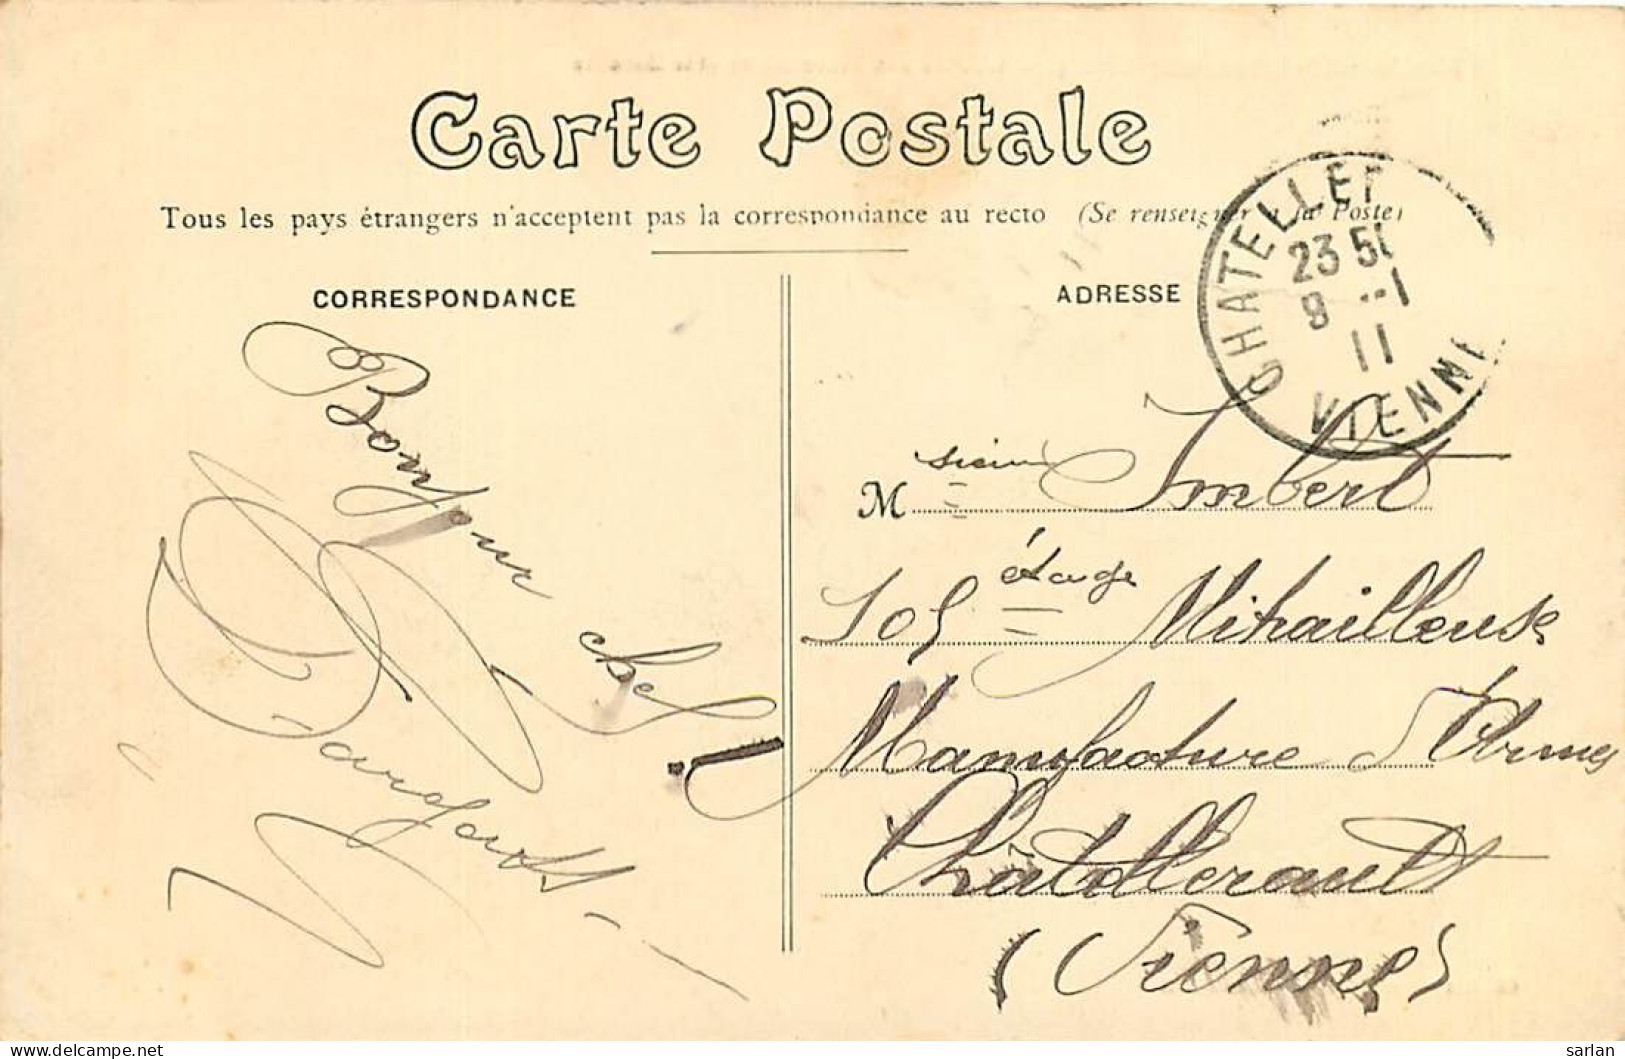 Carte Postale
Tous les pays étrangers n'acceptent pas la correspondance au recto (Se renseigner à la Poste)
CORRESPONDANCE
ADRESSE
CHATELLER
23 50
9 -1
11
VIENNE
Bonjour
chef
M sieur Imbert
étage Mitrailleuse
Manufacture d'Armes
Châtellerault
(Vienne)
delcampe.net
sarlan